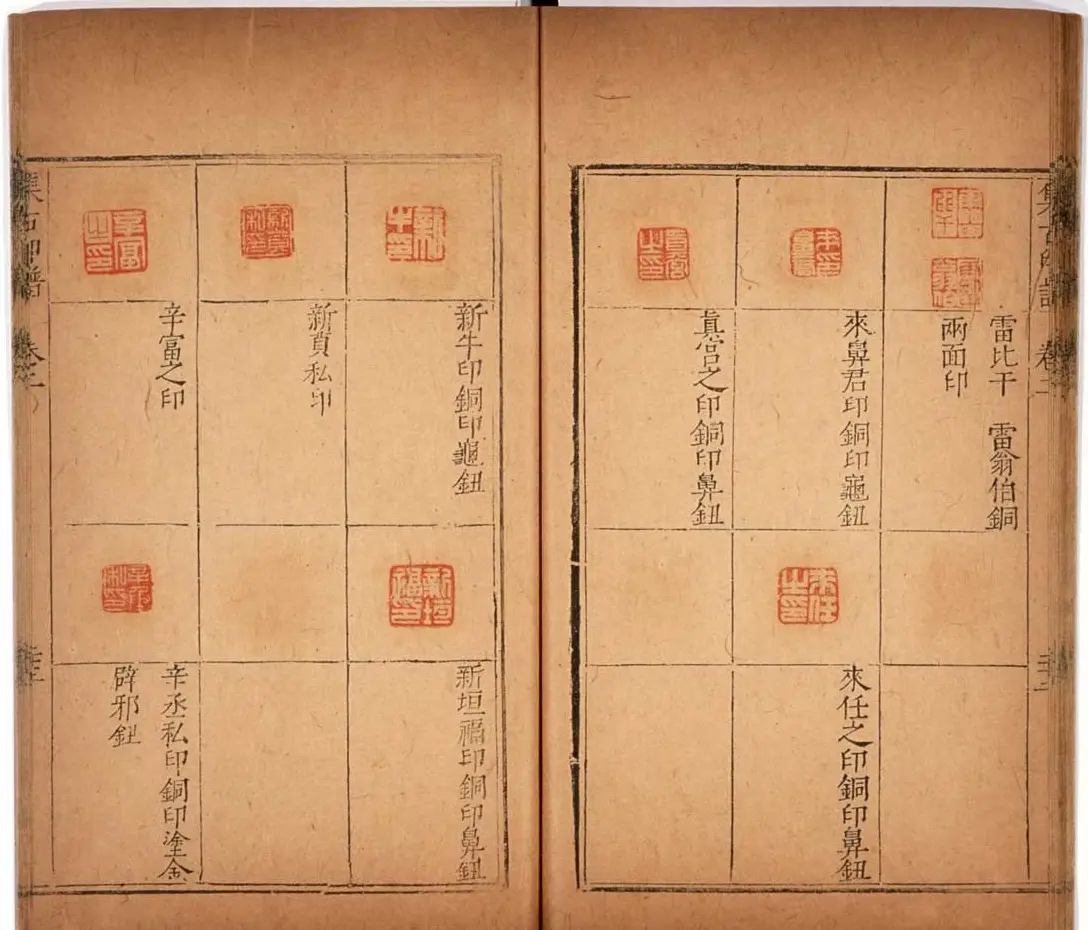 集古印譜 卷二
雷比干 雷翁伯銅
兩面印
來鼻君印銅印龜鈕
來任之印銅印鼻鈕
眞宮之印銅印鼻鈕
新牛印銅印龜鈕
新垣福印銅印鼻鈕
新私印
辛富之印
辛丞私印銅印塗金
辟邪鈕
集古印譜